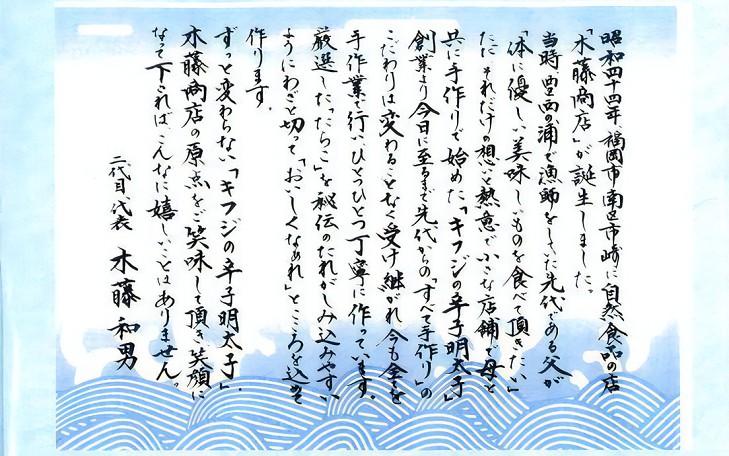 昭和四十四年 福岡市南区市崎に自然食品の店
「木藤商店」が誕生しました。
当時豊西の浦で漁師をしていた先代である父が
「体に優しい美味しいものを食べて頂きたい」
ただそれだけの想いと熱意で小さな店舗で母と
共に手作りで始めた「キフジの辛子明太子」
創業より今日に至るまで先代からの「すべて手作り」の
こだわりは変わることなく受け継がれ今も全てを
手作業で行いひとつひとつ丁寧に作っています。
厳選した「たらこ」を秘伝のたれがしみ込みやすい
ようにわざと切って「おいしくなあれ」とこころを込めて
作ります。
ずっと変わらない「キフジの辛子明太子」。
木藤商店の原点をご笑味して頂き笑顔に
なって下されば、こんなに嬉しいことはありません。
二代目代表 木藤和男